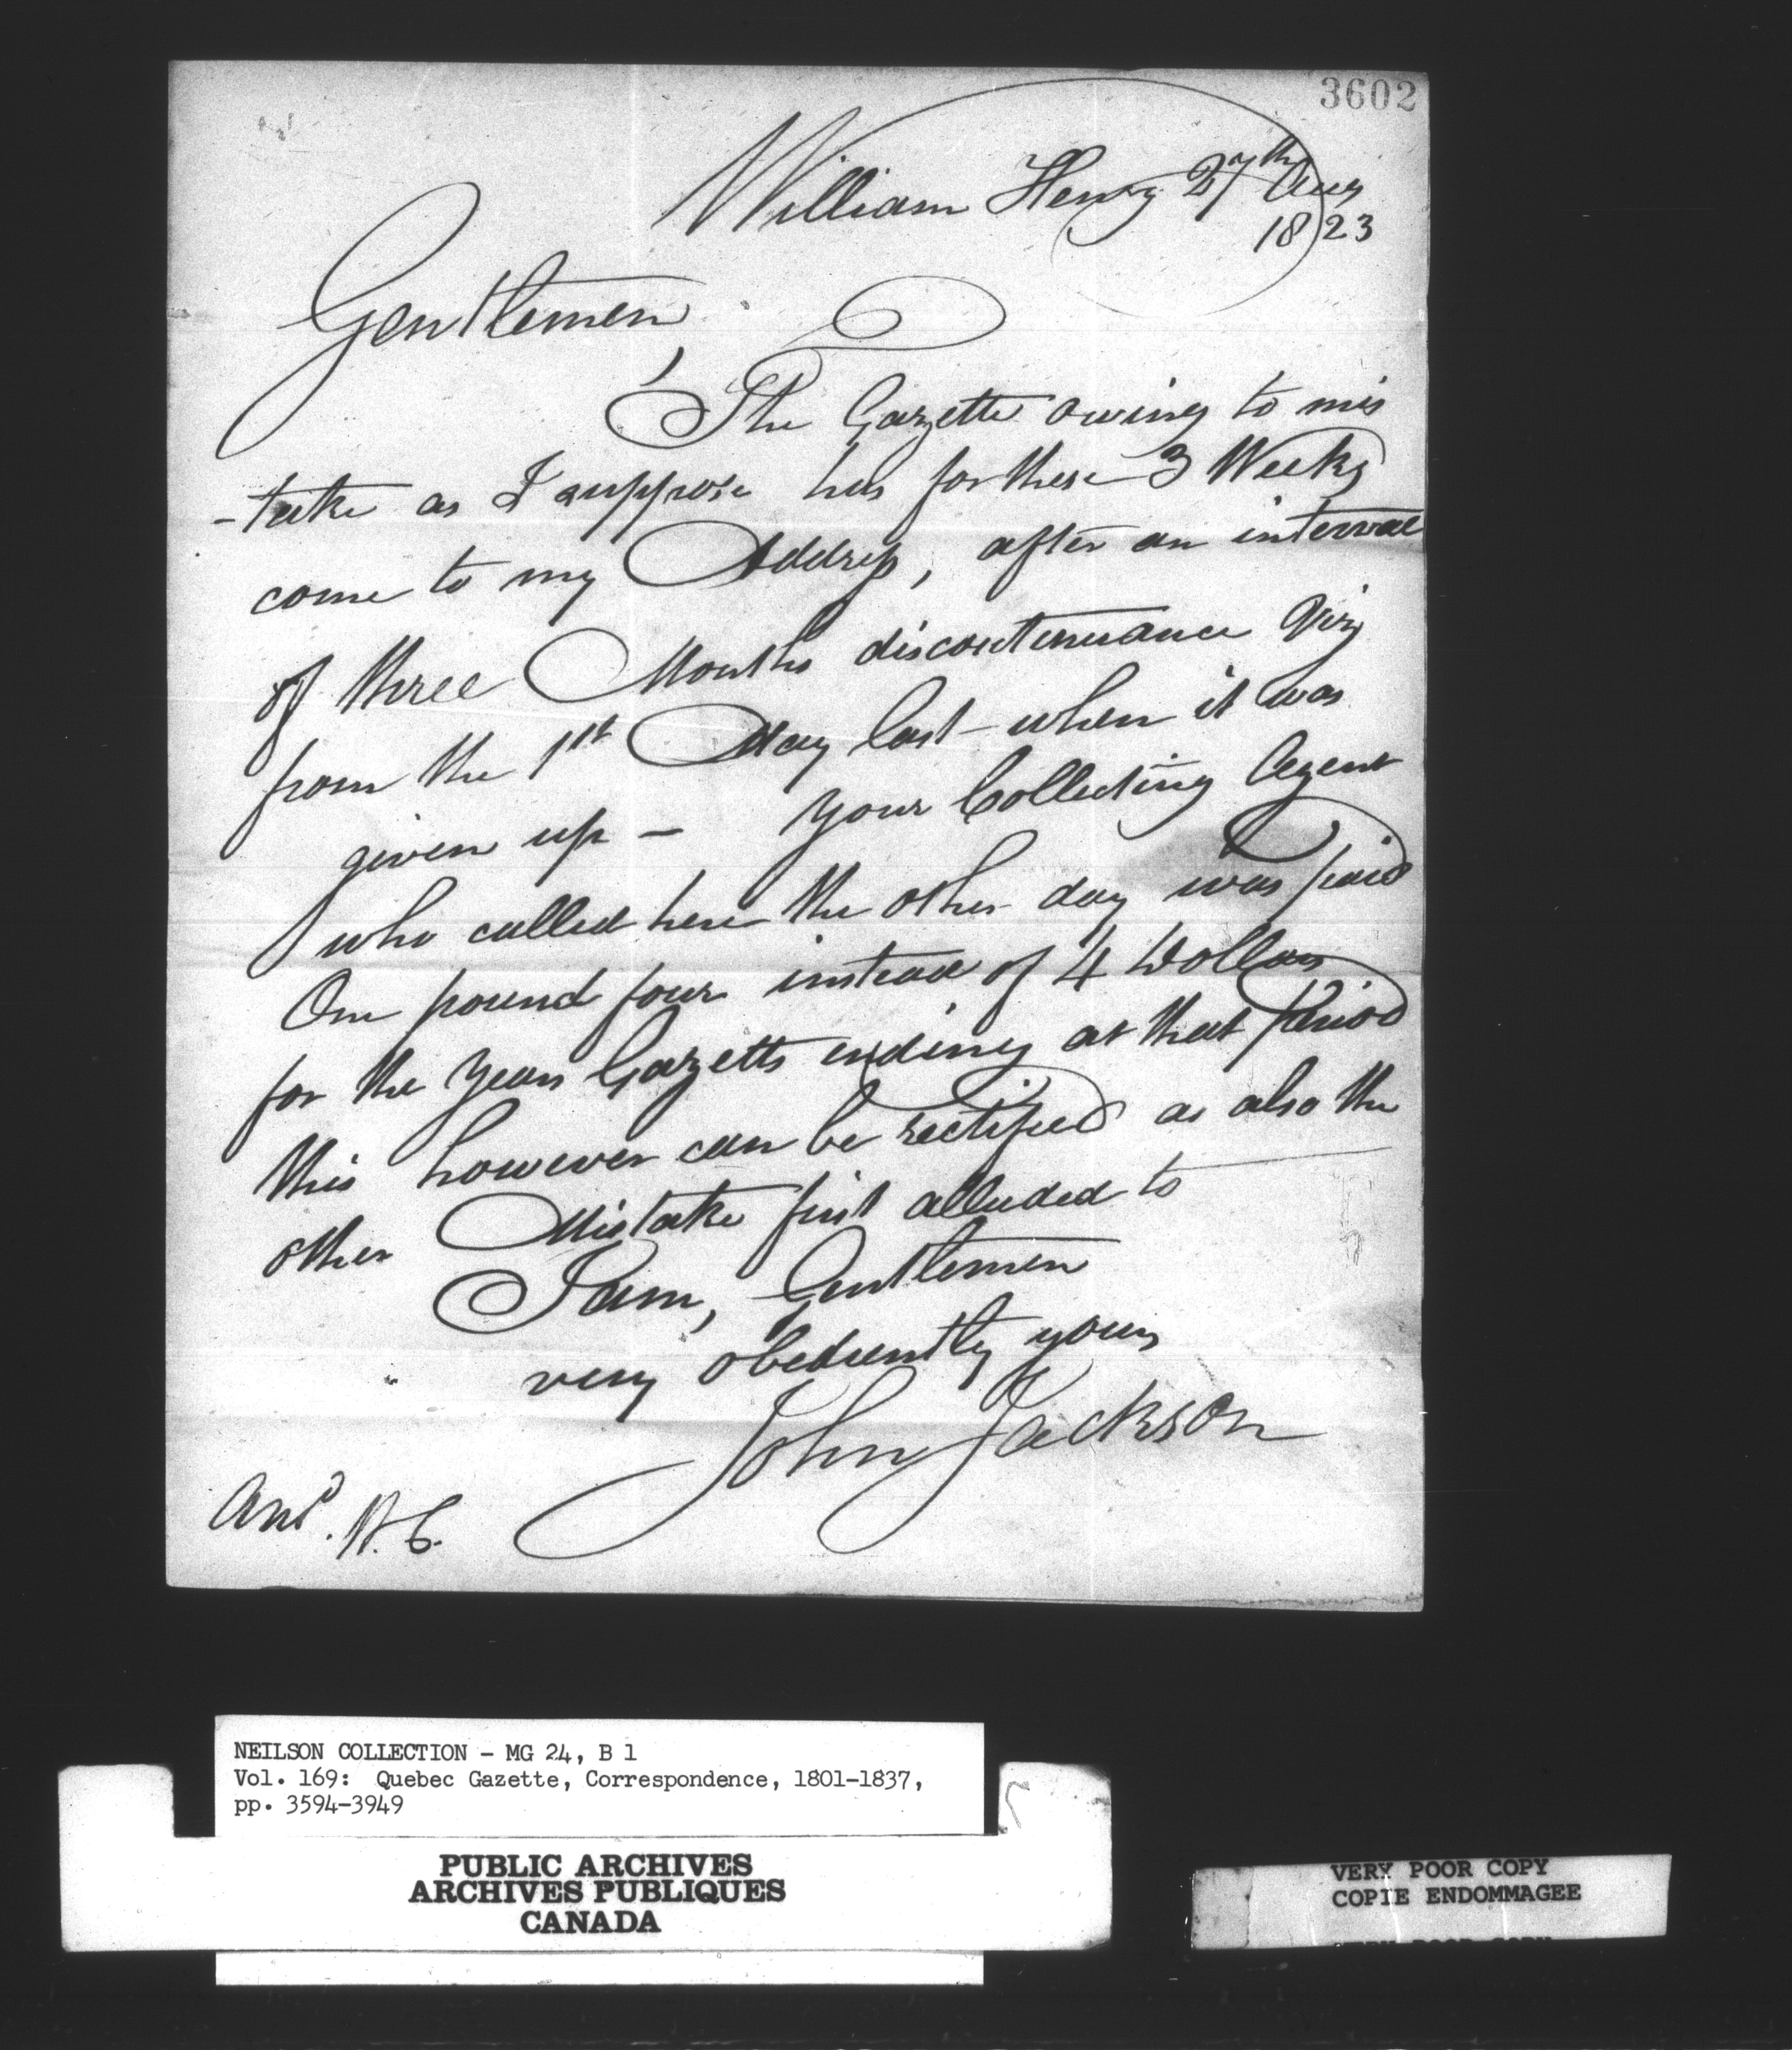 3602
William Henry 27th Aug
1823
Gentlemen,
The Gazette owing to mis
-take as I suppose has for these 3 Weeks
come to my Address, after an interval
of three Months discontinuance Viz
from the 1st May last when it was
given up — Your Collecting Agent
who called here the other day was paid
One pound four instead of 4 Dollars
for the Years Gazette ending at that period
this however can be rectified as also the
other Mistake first alluded to
I am, Gentlemen
very obediently yours
John Jackson
Ansd.
NEILSON COLLECTION - MG 24, B 1
Vol. 169: Quebec Gazette, Correspondence, 1801-1837,
pp. 3594-3949
PUBLIC ARCHIVES
ARCHIVES PUBLIQUES
CANADA
VERY POOR COPY
COPIE ENDOMMAGEE
VERY POOR COPY